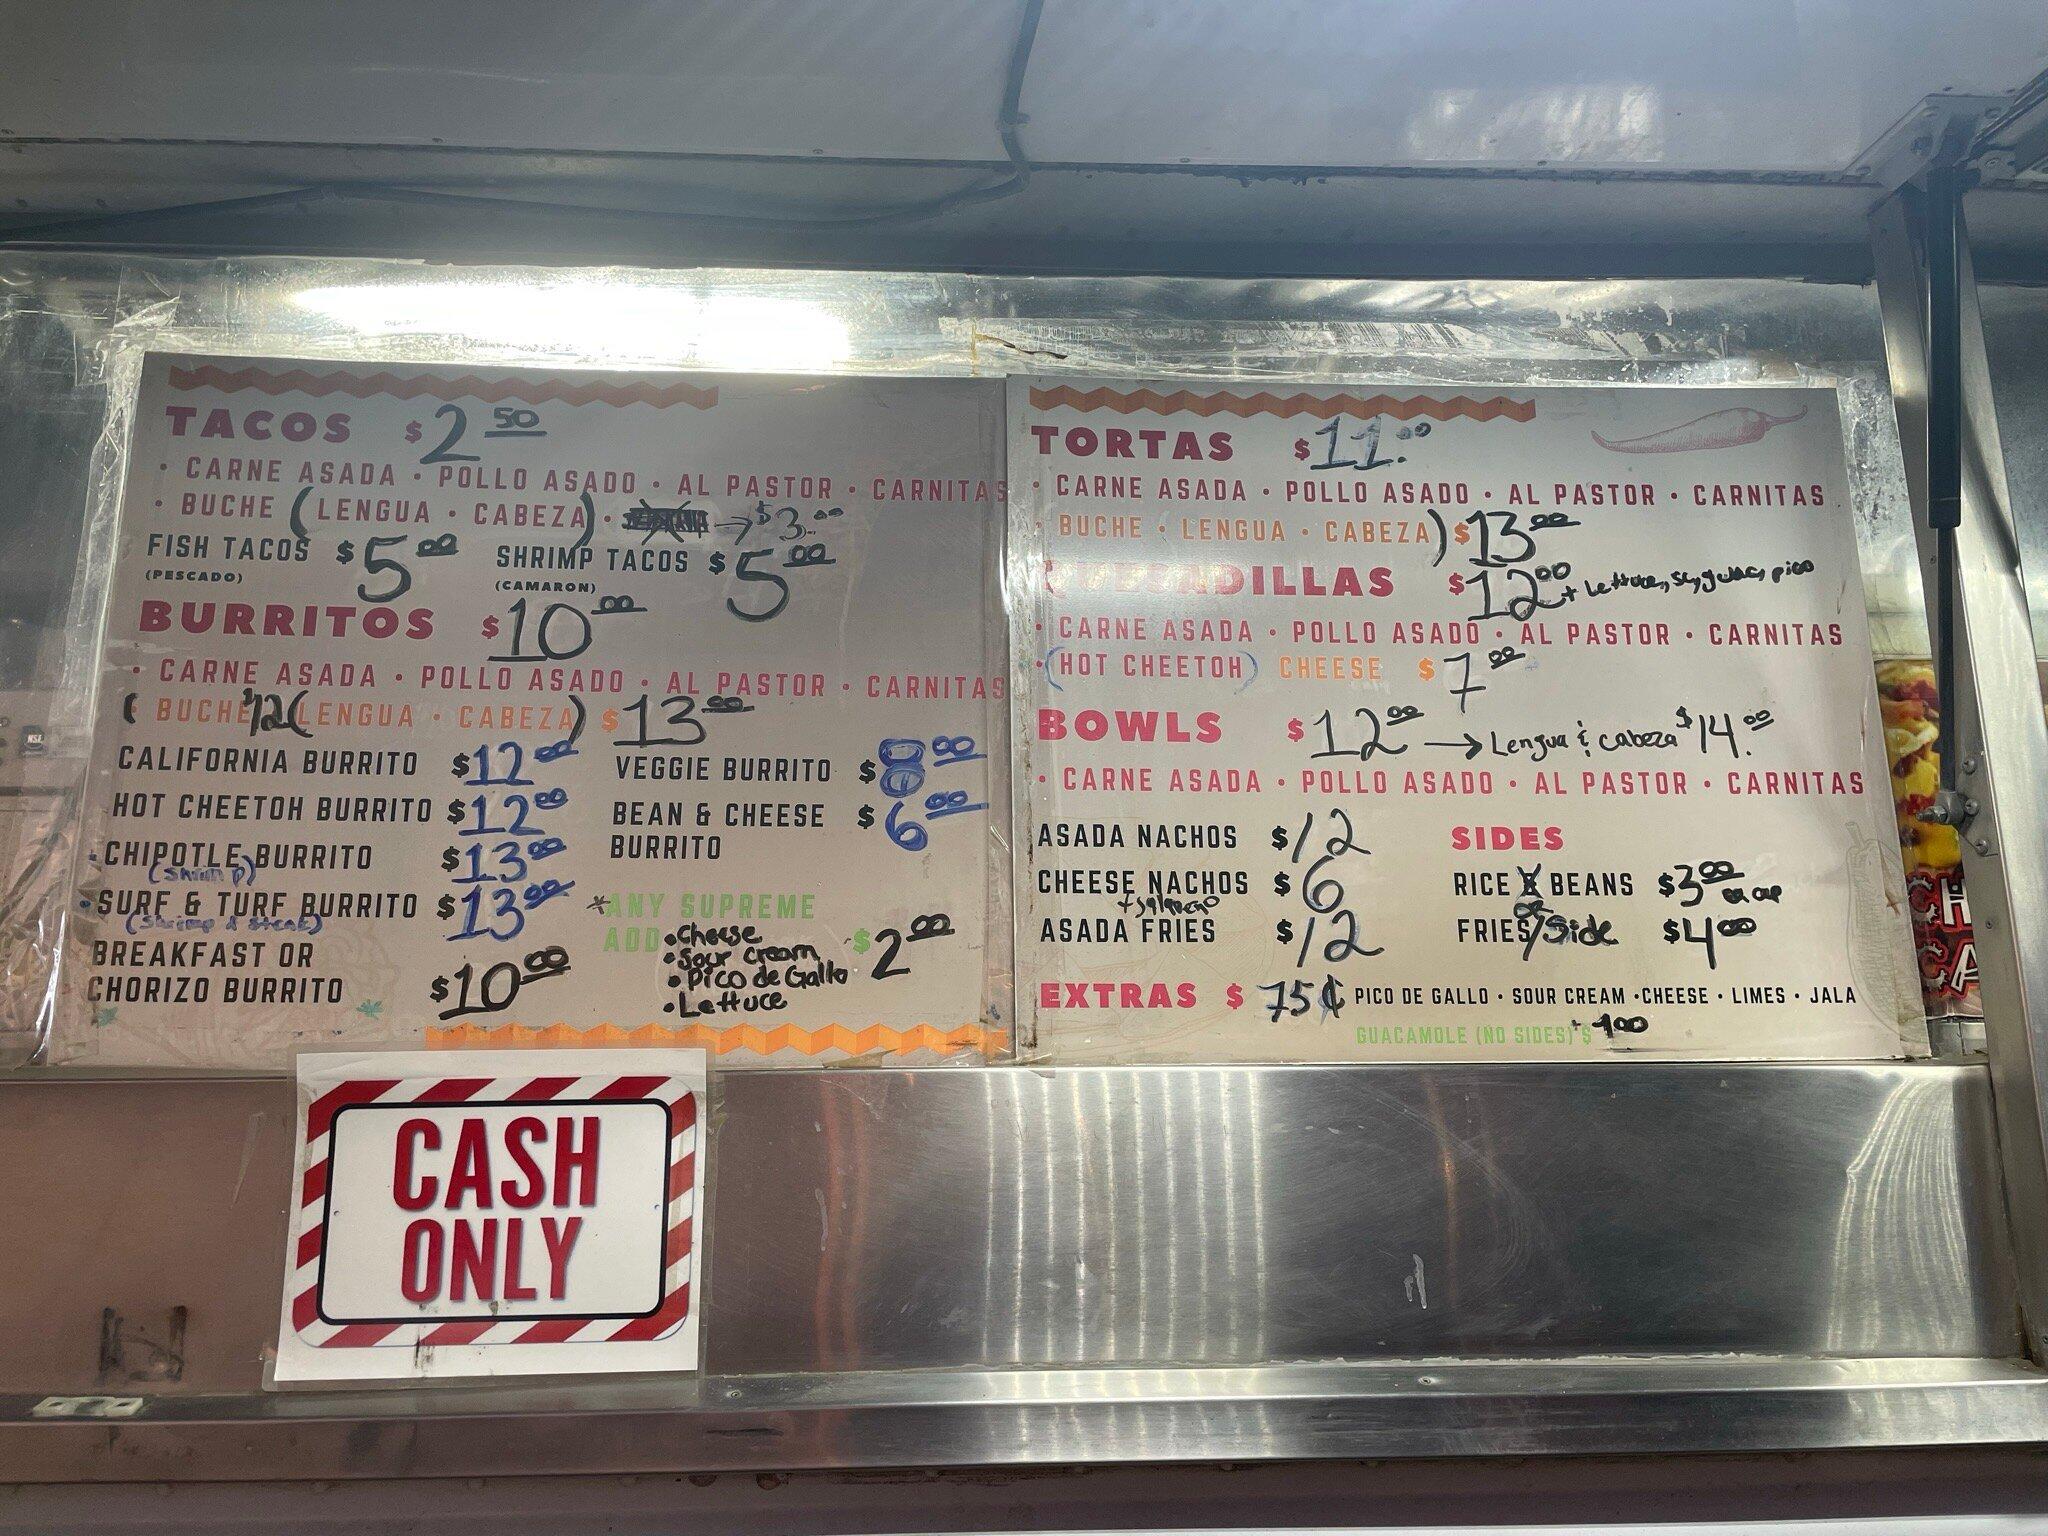 TACOS $2.50
• CARNE ASADA • POLLO ASADO • AL PASTOR • CARNITAS
• BUCHE (LENGUA • CABEZA) • → $3.00
FISH TACOS $5.00 SHRIMP TACOS $5.00
(PESCADO) (CAMARON)
BURRITOS $10.00
• CARNE ASADA • POLLO ASADO • AL PASTOR • CARNITAS
( BUCHE $12 (LENGUA • CABEZA) $13.00
CALIFORNIA BURRITO $12.00 VEGGIE BURRITO $8.00
HOT CHEETOH BURRITO $12.00 BEAN & CHEESE $6.00
BURRITO
• CHIPOTLE BURRITO $13.00
(Shrimp)
• SURF & TURF BURRITO $13.00
(Shrimp & steak)
BREAKFAST OR
CHORIZO BURRITO $10.00
*ANY SUPREME
ADD • Cheese $2.00
• Sour cream
• Pico de Gallo
• Lettuce
TORTAS $11.00
• CARNE ASADA • POLLO ASADO • AL PASTOR • CARNITAS
• BUCHE • LENGUA • CABEZA) $13.00
QUESADILLAS $12.00 + Lettuce, sc, guac, pico
• CARNE ASADA • POLLO ASADO • AL PASTOR • CARNITAS
• (HOT CHEETOH) CHEESE $7.00
BOWLS $12.00 → Lengua & cabeza $14.00
• CARNE ASADA • POLLO ASADO • AL PASTOR • CARNITAS
ASADA NACHOS $12
CHEESE NACHOS $6
+ Jalapeno
ASADA FRIES $12
SIDES
RICE BEANS $3.00 ea cup
OR
FRIES/Side $4.00
EXTRAS $ 75¢ PICO DE GALLO • SOUR CREAM • CHEESE • LIMES • JALA
GUACAMOLE (NO SIDES) $ + 1.00
CASH
ONLY